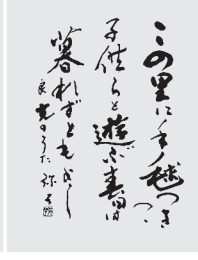 この里に手毬つきつつ
子供らと遊ぶ春日は
暮れずともよし
良寛のうた 弥